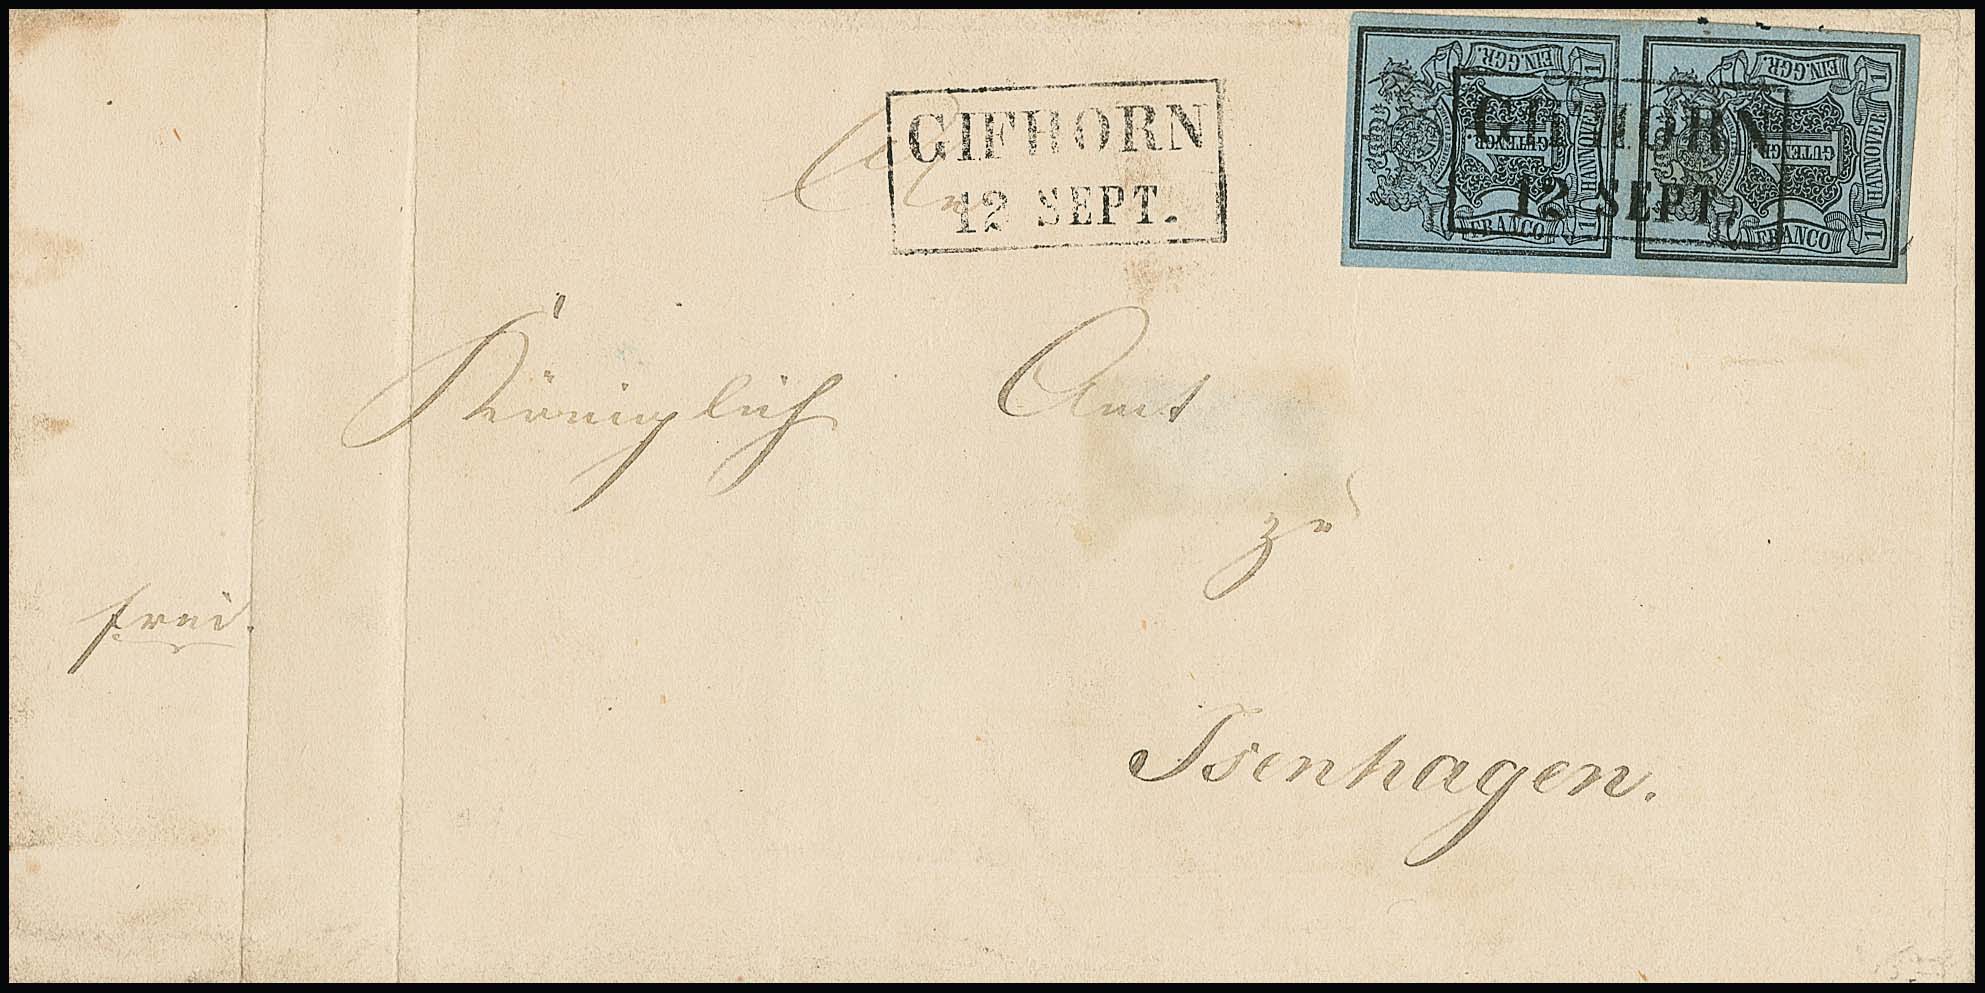 GIFHORN
12 SEPT.
EIN.GGR.
1
GUTENGR.
HANNOVER
FRANCO
1
EIN.GGR.
1
1
GUTENGR.
HANNOVER
FRANCO
1
GIFHORN
12 SEPT.
An
Königlich Amt
zu
frei.
Isenhagen.